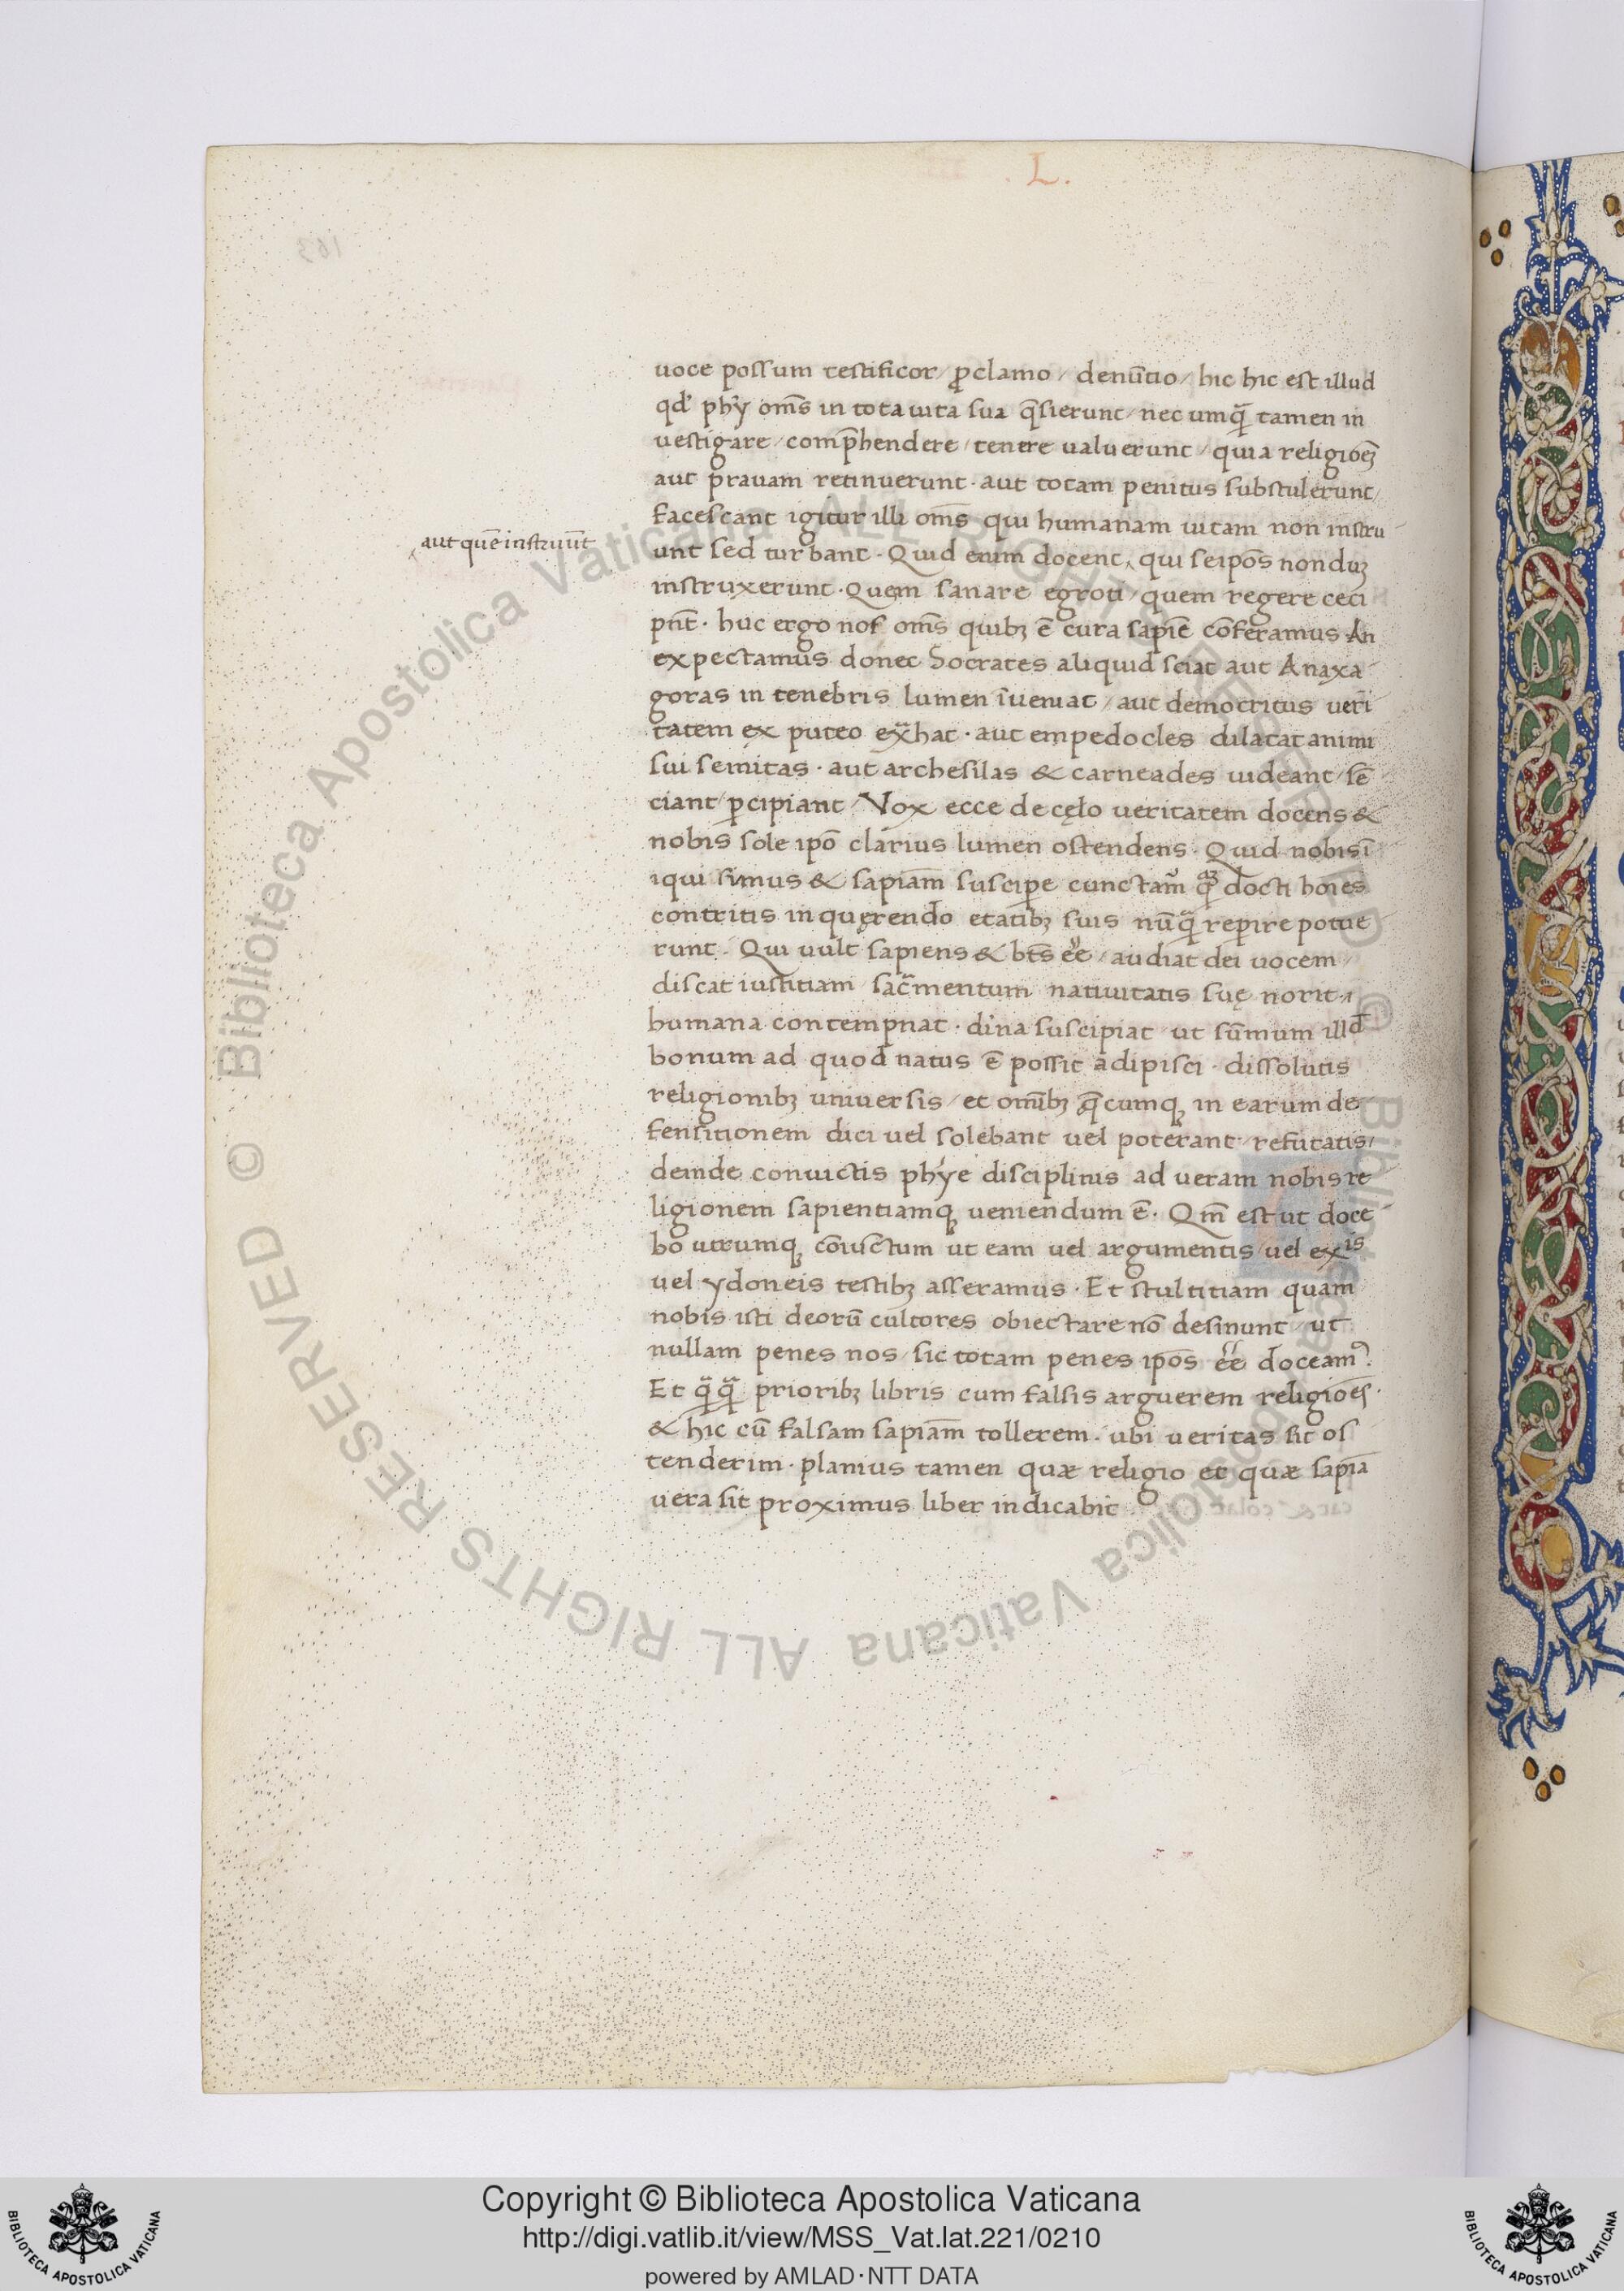 . L .
uoce possum testificor / ꝓclamo / denūtio / hic hic est illud
qđ phỹ om̄s in tota uita sua q̄sierunt / nec umq̄ tamen in
vestigare / comp̄hendere / tenere valuerunt / quia religiōeꝫ
aut p̄rauam retinuerunt . aut totam penitus substulerunt /
facescant igitur illi om̄s qui humanam uitam non instru
aut quē instruūt
unt sed turbant . Quid enim docent ‸ qui seipōs nonduꝫ
instruxerunt . Quem sanare egroti / quem regere ceci
pn̄t . huc ergo nos om̄s quibꝫ ē cura sapiē cōferamus An
expectamus donec Socrates aliquid sciat aut Anaxa
goras in tenebris lumen īveniat / aut democritus veri
tatem ex puteo ex̄hat . aut empedocles dilatat animi
sui semitas . aut archesilas & carneades uideant / sē
ciant / ꝑcipiant / Vox ecce de cęlo ueritatem docens &
nobis sole ipō clarius lumen ostendens . Quid nobis ī
iqui simus & sapiam̄ suscipe cunctam̄ q̄ꝫ docti hoīes
contritis in quęrendo etatibꝫ suis nūq̄ reꝑire potue
runt . Qui uult sapiens & bt̄s eē / audiat dei uocem /
discat iustitiam / sac̄mentum natiuitatis suę norit .
humana contempnat . diīna suscipiat ut sūmum illđ
bonum ad quod natus ē possit adipisci . dissolutis
religionibꝫ universis / et omībꝫ q̄cumqꝫ in earum de
fensitionem dici uel solebant uel poterant / refutatis /
deinde convictis phỹe disciplinis ad ueram nobis re
ligionem sapientiamqꝫ ueniendum ē . Qm̄ est ut doce
bo utrumqꝫ cōiūctum ut eam uel argumentis / uel ex͡is
vel ydoneis testibꝫ asseramus . Et stultitiam quam
nobis isti deorū cultores obiectare nō desinunt / ut
nullam penes nos / sic totam penes ipōs eē doceamꝰ .
Et q̄q̄ prioribꝫ libris cum falsis arguerem religiōes .
& hic cū falsam sapiam̄ tollerem . ubi ueritas sit os
tenderim . planius tamen quæ religio et quæ sapīa
uera sit proximus liber indicabit
© Biblioteca Apostolica Vaticana ALL RIGHTS RESERVED
© Biblioteca Apostolica Vaticana ALL RIGHTS RESERVED
Copyright © Biblioteca Apostolica Vaticana
http://digi.vatlib.it/view/MSS_Vat.lat.221/0210
powered by AMLAD·NTT DATA
BIBLIOTECA APOSTOLICA VATICANA
BIBLIOTECA APOSTOLICA VATICANA